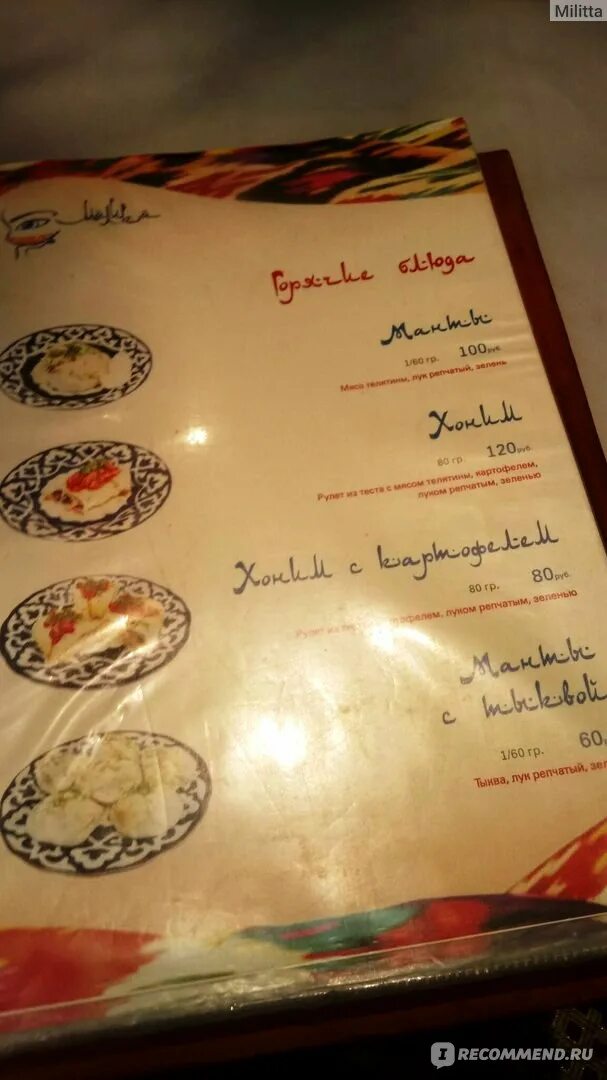 Militta
Горячие блюда
Манты
1/60 гр. 100руб.
Мясо телятины, лук репчатый, зелень
Хоним
80 гр. 120руб.
Рулет из теста с мясом телятины, картофелем,
луком репчатым, зеленью
Хоним с картофелем
80 гр. 80руб.
Рулет из луком репчатым, зеленью
Манты
с тыквой
1/60 гр. 60
Тыква, лук репчатый, зел
IRECOMMEND.RU